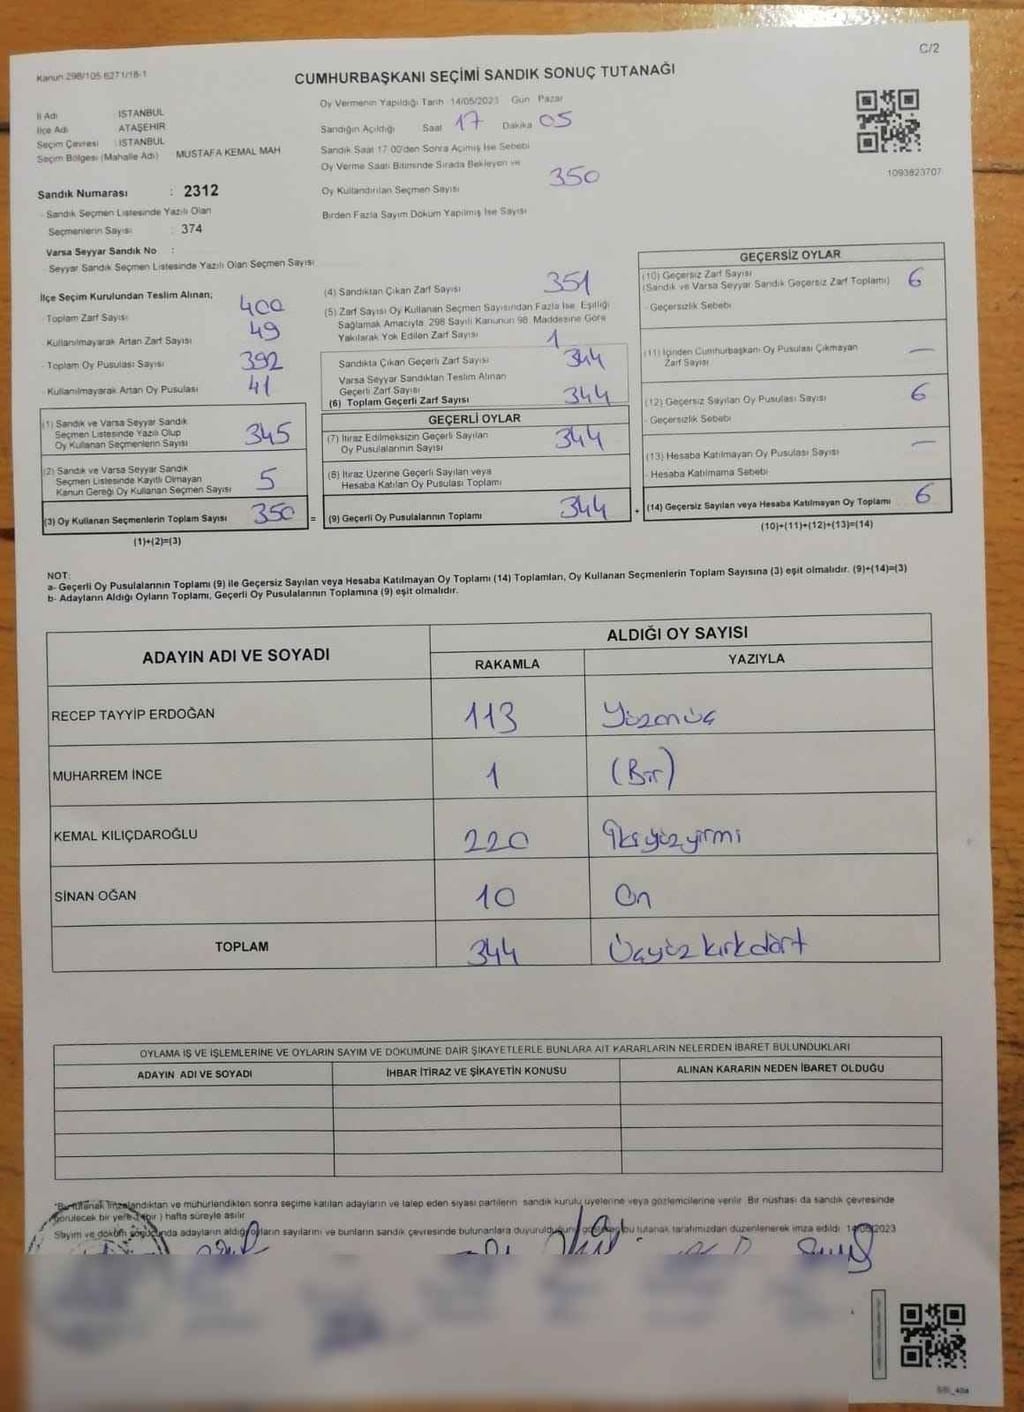 C/2
Kanun 298/105-6271/18-1
CUMHURBAŞKANI SEÇİMİ SANDIK SONUÇ TUTANAĞI
İl Adı : İSTANBUL
İlçe Adı : ATAŞEHİR
Seçim Çevresi : İSTANBUL
Seçim Bölgesi (Mahalle Adı) MUSTAFA KEMAL MAH
Sandık Numarası : 2312
Sandık Seçmen Listesinde Yazılı Olan
Seçmenlerin Sayısı : 374
Varsa Seyyar Sandık No :
Seyyar Sandık Seçmen Listesinde Yazılı Olan Seçmen Sayısı
Oy Vermenin Yapıldığı Tarih 14/05/2023 Gün Pazar
Sandığın Açıldığı Saat 17 Dakika 05
Sandık Saat 17.00'den Sonra Açılmış İse Sebebi
Oy Verme Saati Bitiminde Sırada Bekleyen ve
Oy Kullandırılan Seçmen Sayısı 350
Birden Fazla Sayım Döküm Yapılmış İse Sayısı
1093823707
İlçe Seçim Kurulundan Teslim Alınan;
Toplam Zarf Sayısı 400
Kullanılmayarak Artan Zarf Sayısı 49
Toplam Oy Pusulası Sayısı 392
Kullanılmayarak Artan Oy Pusulası 41
(1) Sandık ve Varsa Seyyar Sandık
Seçmen Listesinde Yazılı Olup
Oy Kullanan Seçmenlerin Sayısı 345
(2) Sandık ve Varsa Seyyar Sandık
Seçmen Listesinde Kayıtlı Olmayan
Kanun Gereği Oy Kullanan Seçmen Sayısı 5
(3) Oy Kullanan Seçmenlerin Toplam Sayısı 350 =
(1)+(2)=(3)
(4) Sandıktan Çıkan Zarf Sayısı 351
(5) Zarf Sayısı Oy Kullanan Seçmen Sayısından Fazla İse, Eşitliği
Sağlamak Amacıyla 298 Sayılı Kanunun 98. Maddesine Göre
Yakılarak Yok Edilen Zarf Sayısı 1
Sandıkta Çıkan Geçerli Zarf Sayısı 344
Varsa Seyyar Sandıktan Teslim Alınan
Geçerli Zarf Sayısı
(6) Toplam Geçerli Zarf Sayısı 344
GEÇERLİ OYLAR
(7) İtiraz Edilmeksizin Geçerli Sayılan
Oy Pusulalarının Sayısı 344
(8) İtiraz Üzerine Geçerli Sayılan veya
Hesaba Katılan Oy Pusulası Toplamı
(9) Geçerli Oy Pusulalarının Toplamı 344 +
GEÇERSİZ OYLAR
(10) Geçersiz Zarf Sayısı
(Sandık ve Varsa Seyyar Sandık Geçersiz Zarf Toplamı) 6
Geçersizlik Sebebi
(11) İçinden Cumhurbaşkanı Oy Pusulası Çıkmayan
Zarf Sayısı —
(12) Geçersiz Sayılan Oy Pusulası Sayısı 6
Geçersizlik Sebebi
(13) Hesaba Katılmayan Oy Pusulası Sayısı —
Hesaba Katılmama Sebebi
(14) Geçersiz Sayılan veya Hesaba Katılmayan Oy Toplamı 6
(10)+(11)+(12)+(13)=(14)
NOT:
a- Geçerli Oy Pusulalarının Toplamı (9) ile Geçersiz Sayılan veya Hesaba Katılmayan Oy Toplamı (14) Toplamları, Oy Kullanan Seçmenlerin Toplam Sayısına (3) eşit olmalıdır. (9)+(14)=(3)
b- Adayların Aldığı Oyların Toplamı, Geçerli Oy Pusulalarının Toplamına (9) eşit olmalıdır.
ADAYIN ADI VE SOYADI
ALDIĞI OY SAYISI
RAKAMLA YAZIYLA
RECEP TAYYİP ERDOĞAN 113 Yüzonüç
MUHARREM İNCE 1 (Bir)
KEMAL KILIÇDAROĞLU 220 İkiyüzyirmi
SİNAN OĞAN 10 On
TOPLAM 344 Üçyüzkırkdört
OYLAMA İŞ VE İŞLEMLERİNE VE OYLARIN SAYIM VE DÖKÜMÜNE DAİR ŞİKAYETLERLE BUNLARA AİT KARARLARIN NELERDEN İBARET BULUNDUKLARI
ADAYIN ADI VE SOYADI İHBAR İTİRAZ VE ŞİKAYETİN KONUSU ALINAN KARARIN NEDEN İBARET OLDUĞU
"Bu tutanak imzalandıktan ve mühürlendikten sonra seçime katılan adayların ve talep eden siyasi partilerin sandık kurulu üyelerine veya gözlemcilerine verilir. Bir nüshası da sandık çevresinde
görülecek bir yere 1 (bir) hafta süreyle asılır.
Sayım ve döküm sonucunda adayların aldığı oyların sayılarını ve bunların sandık çevresinde bulunanlara duyurulduğunu gösteren bu tutanak tarafımızdan düzenlenerek imza edildi. 14/05/2023